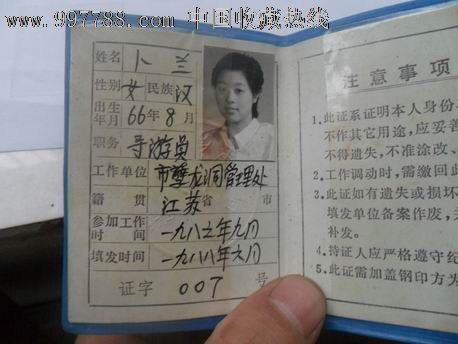 www.997788.com 中国收藏热线
姓名 卜兰
性别 女 民族 汉
出生年月 66年8月
职务 导游员
工作单位 市孽龙洞管理处
籍贯 江苏省 市
参加工作时间 一九八三年九月
填发时间 一九八八年六月
证字 007 号
注意事项
1.此证系证明本人身份
不作其它用途，应妥善
不得遗失，不准涂改、
2.工作调动时，需缴回此
3.此证如有遗失或损坏
填发单位备案作废，
补发。
4.持证人应严格遵守纪
5.此证需加盖钢印方为